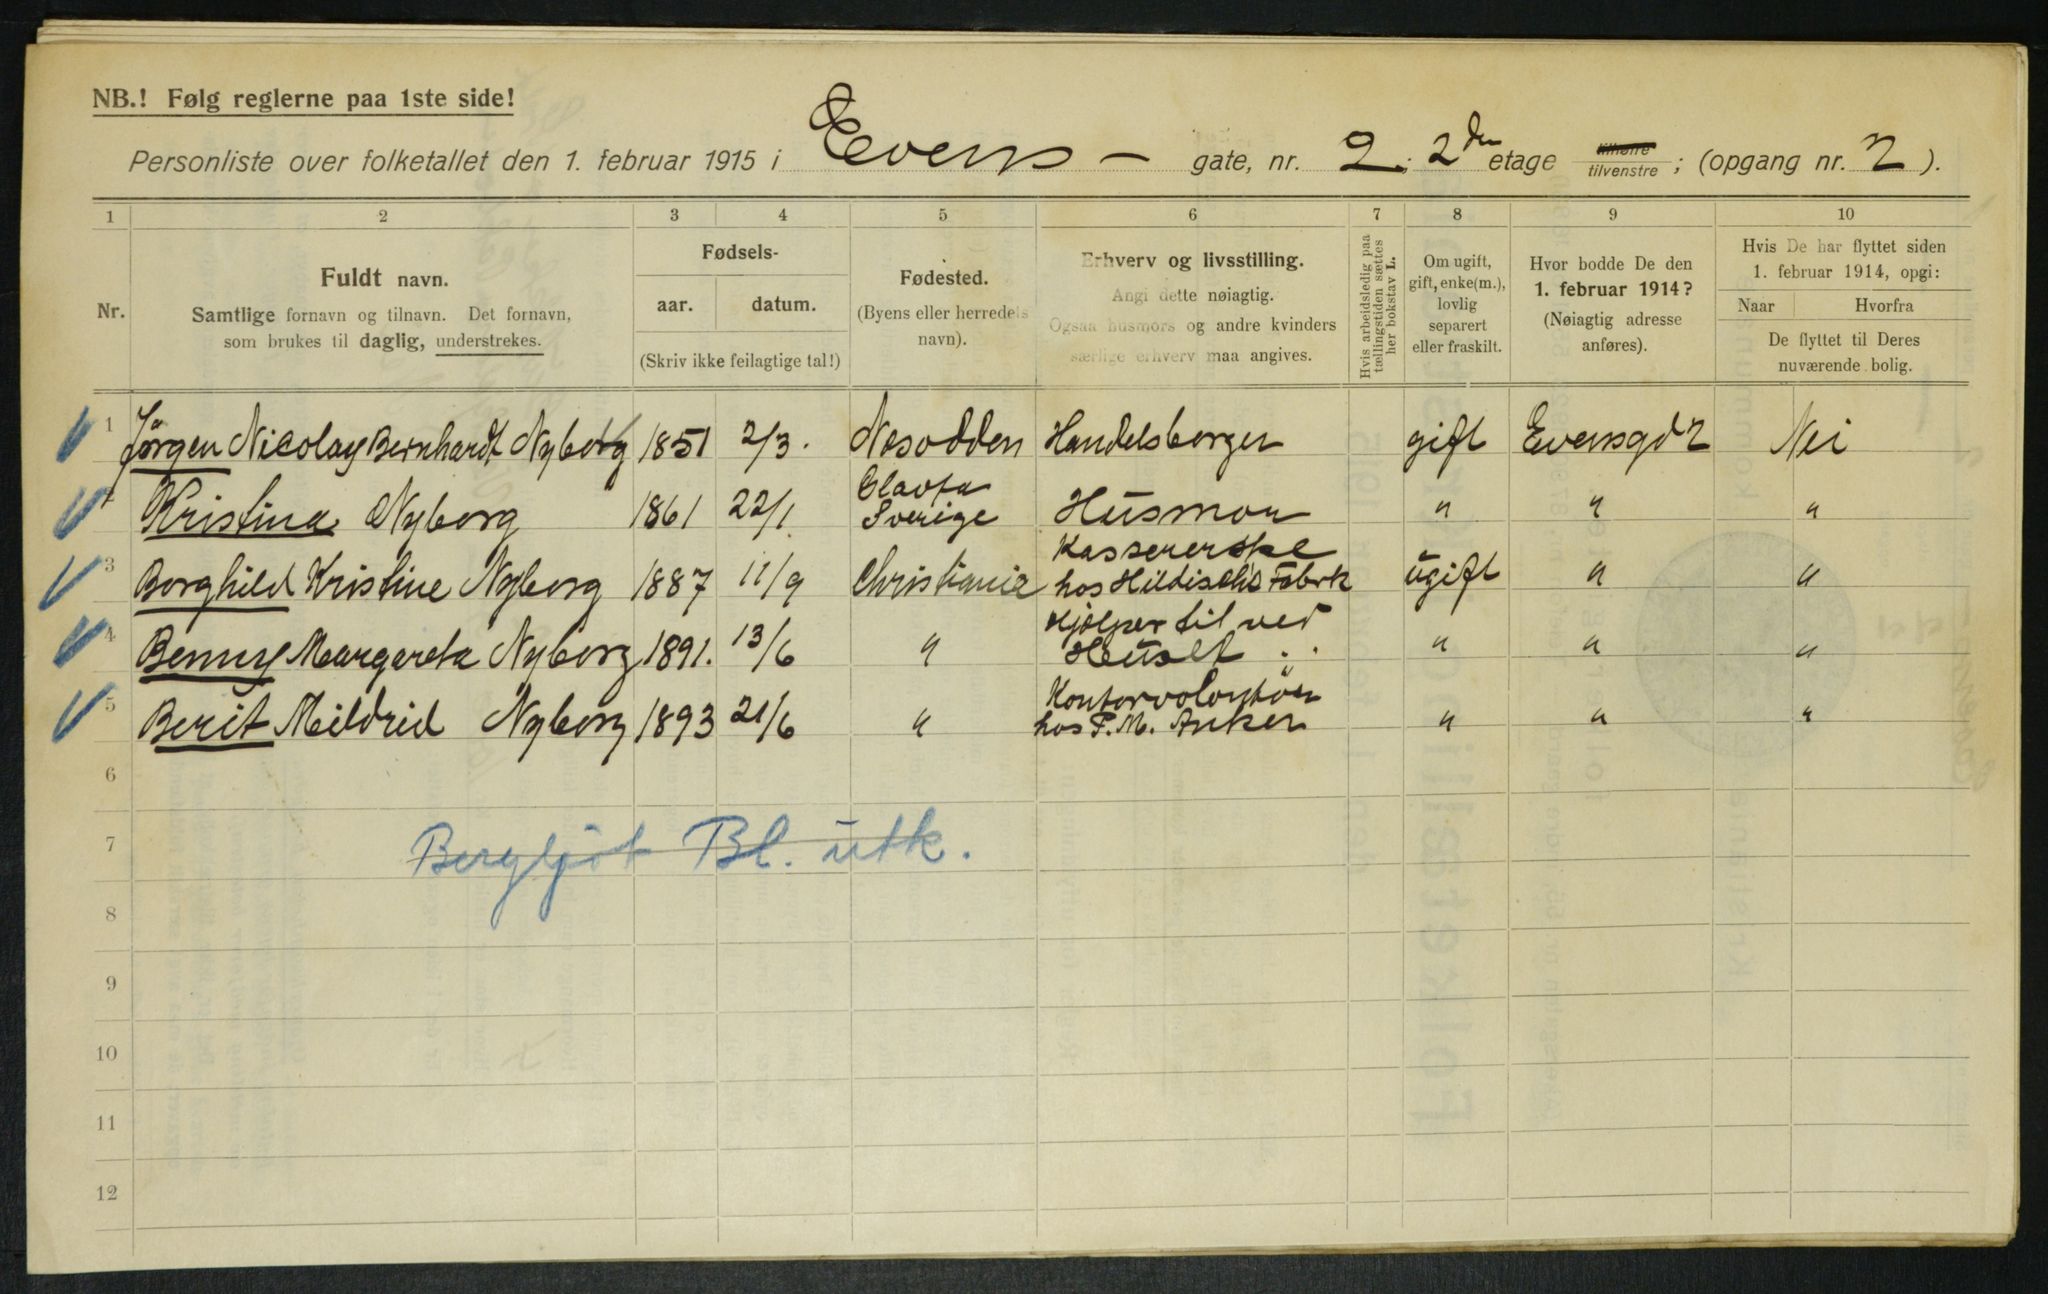 NB.! Følg reglerne paa 1ste side!
Personliste over folketallet den 1. februar 1915 i Evens - gate, nr. 2; 2den etage tilhøire/tilvenstre; (opgang nr. 2).
1 2 3 4 5 6 7 8 9 10
Nr.
Fuldt navn.
Samtlige fornavn og tilnavn. Det fornavn,
som brukes til daglig, understrekes.
Fødsels-
aar. datum.
(Skriv ikke feilagtige tal!)
Fødested.
(Byens eller herredets
navn).
Erhverv og livsstilling.
Angi dette nøiagtig.
Ogsaa husmors og andre kvinders
særlige erhverv maa angives.
Hvis arbeidsledig paa
tællingstiden sættes
her bokstav L.
Om ugift,
gift, enke(m.),
lovlig
separert
eller fraskilt.
Hvor bodde De den
1. februar 1914?
(Nøiagtig adresse
anføres).
Hvis De har flyttet siden
1. februar 1914, opgi:
Naar Hvorfra
De flyttet til Deres
nuværende bolig.
1 Jørgen Nicolay Bernhardt Nyborg 1851 2/3. Nesodden Handelsborger gift Evensgd 2 Nei
2 Kristina Nyborg 1861 22/1. Sverige Husmor " " "
3 Borghild Kristine Nyborg 1887 11/9 Christiania Kassererske
hos Fabrk ugift " "
4 Benny Margareta Nyborg 1891. 13/6 " Hjælper til ved
Huset " " "
5 Berit Mildrid Nyborg 1893 21/6 " Kontorvolontør
hos P. M. Anker " " "
6
7 Bergljót Bl. utk.
8
9
10
11
12